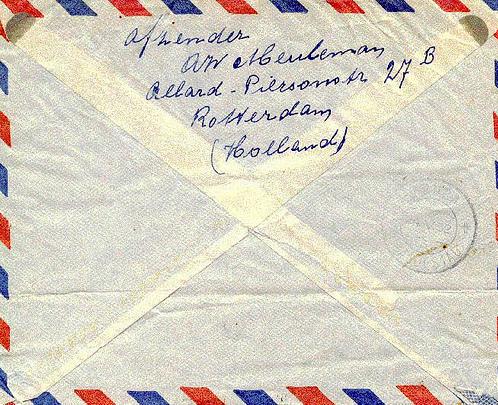 afzender
AW Meuleman
Allard-Piersonstr 27 B
Rotterdam
(Holland)